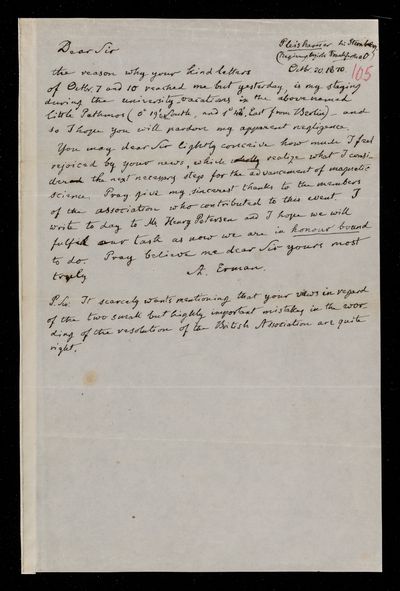 Dear Sir
Octbr. 20. 1870.
105
the reason why your kind letters
of Octbr. 7 and 10 reached me but yesterday, is my staying
during the university-vacations in the above named
little Pathmos (0° 19' South, and 1° East from Berlin) — and
so I hope you will pardon my apparent negligence
You may dear Sir lightly conceive how much I feel
rejoiced by your news, which realize what I consi-
dered the next necessary steps for the advancement of magnetic
science. Pray give my sincerest thanks to the members
of the association who contributed to this event. I
write to day to Mr Henry Petersen and I hope we will
fulfill our task as now we are in honour bound
to do. Pray believe me dear Sir yours most
truly A. Erman.
P.S. It scarcely wants mentioning that your views in regard
of the two small but highly important mistakes in the wor-
ding of the resolution of the British Association are quite
right.